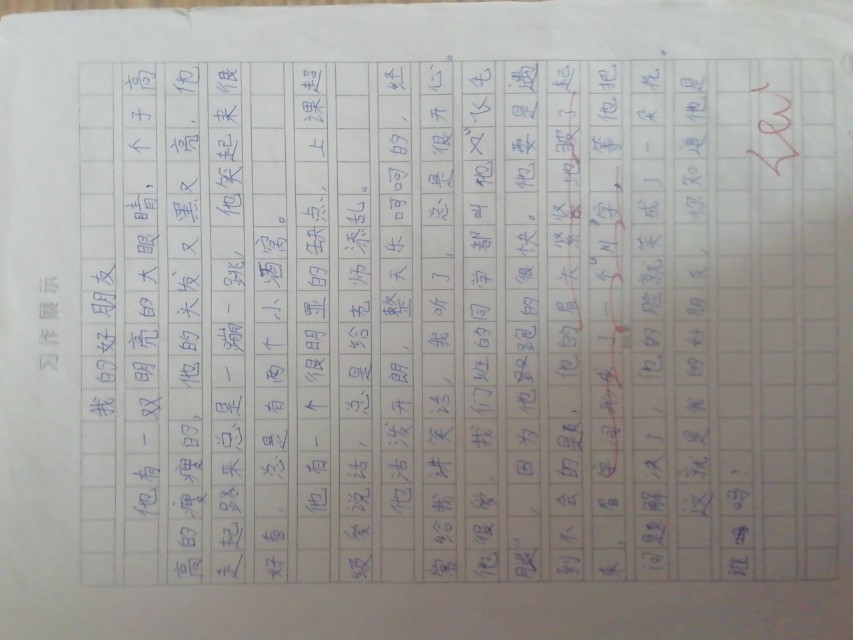 习作展示
我的好朋友
他有一双明亮的大眼睛，个子高
高的瘦瘦的，他的头发又黑又亮，他
走起路来总是一蹦一跳，他笑起来很
好看，总是有两个小酒窝。
他有一个很明显的缺点，上课超
级爱说话，总是给老师添乱。
他活泼开朗，整天乐呵呵的，经
常给我讲笑话，我听了，总是很开心。
他很爱，我们班的同学都叫他"飞毛
腿"，因为他跑的很快。他要是遇
到不会的题，他的眉头紧皱起
来，眉间
问题解决了，他的脸就笑成了一朵花。
这就是我的好朋友，你知道他是
谁吗？